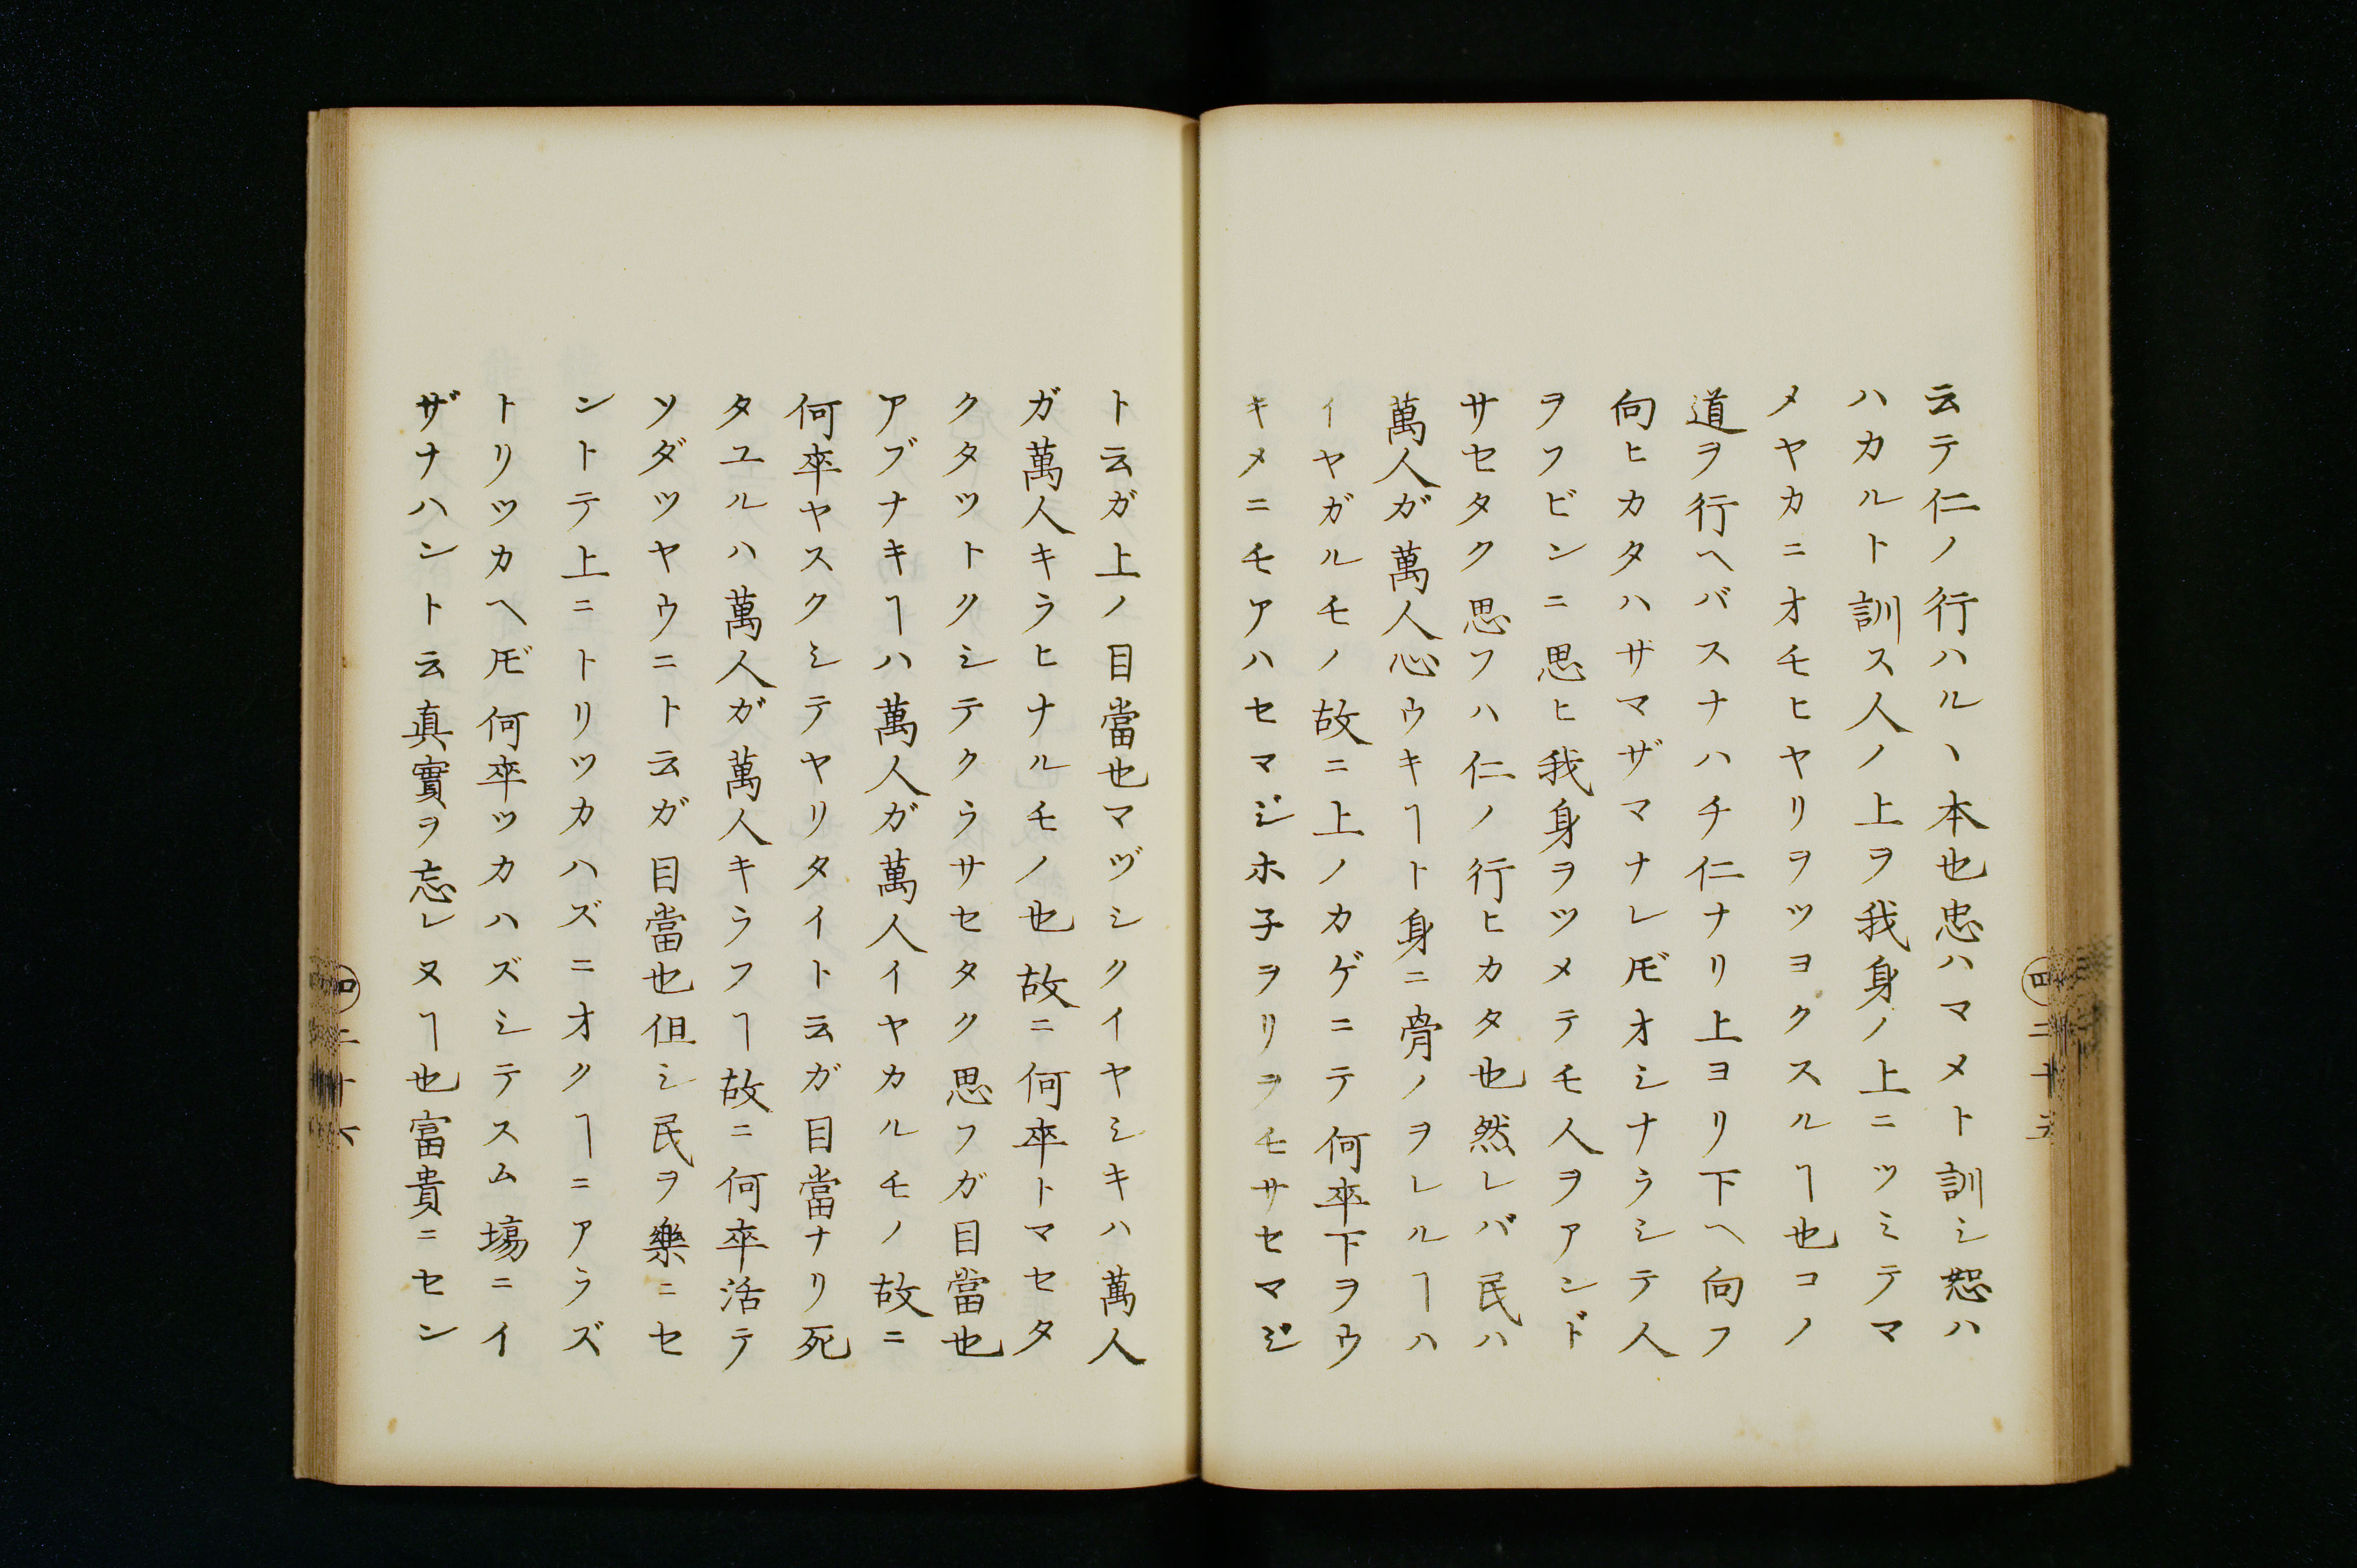 云テ仁ノ行ハルヽ本也忠ハマメト訓シ恕ハ
ハカルト訓ス人ノ上ヲ我身ノ上ニツミテマ
メヤカニオモヒヤリヲツヨクスルヿ也コノ
道ヲ行ヘバスナハチ仁ナリ上ヨリ下ヘ向フ
向ヒカタハサマザマナレ𪜈オシナラシテ人
ヲフビンニ思ヒ我身ヲツメテモ人ヲアンド
サセタク思フハ仁ノ行ヒカタ也然レバ民ハ
萬人ガ萬人心ウキヿト身ニ骨ノヲレルヿハ
イヤガルモノ故ニ上ノカゲニテ何卒下ヲウ
キメニモアハセマジホ子ヲリヲモサセマジ
ト云ガ上ノ目當也マヅシクイヤシキハ萬人
ガ萬人キラヒナルモノ也故ニ何卒トマセタ
クタツトクシテクラサセタク思フガ目當也
アブナキヿハ萬人ガ萬人イヤカルモノ故ニ
何卒ヤスクシテヤリタイト云ガ目當ナリ死
タユルハ萬人ガ萬人キラフヿ故ニ何卒活テ
ソダツヤウニト云ガ目當也但シ民ヲ樂ニセ
ントテ上ニトリツカハズニオクヿニアラズ
トリツカヘ𪜈何卒ツカハズシテスム塲ニイ
ザナハント云真實ヲ忘レヌヿ也富貴ニセン
四 二十五
四 二十六